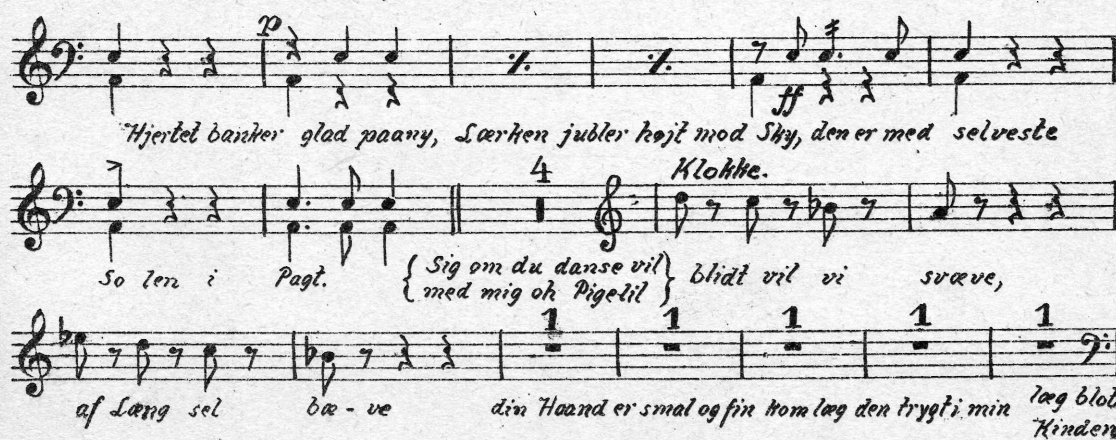 p
ff
Hjertet banker glad paany, Lærken jubler højt mod Sky, den er med selveste
4 Klokke.
So len i Pagt. { Sig om du danse vil } blidt vil vi svæve,
med mig oh Pigelil
1 1 1 1 1
af Læng sel bæ - ve din Haand er smal og fin kom læg den trygt i min læg blot
Kinden